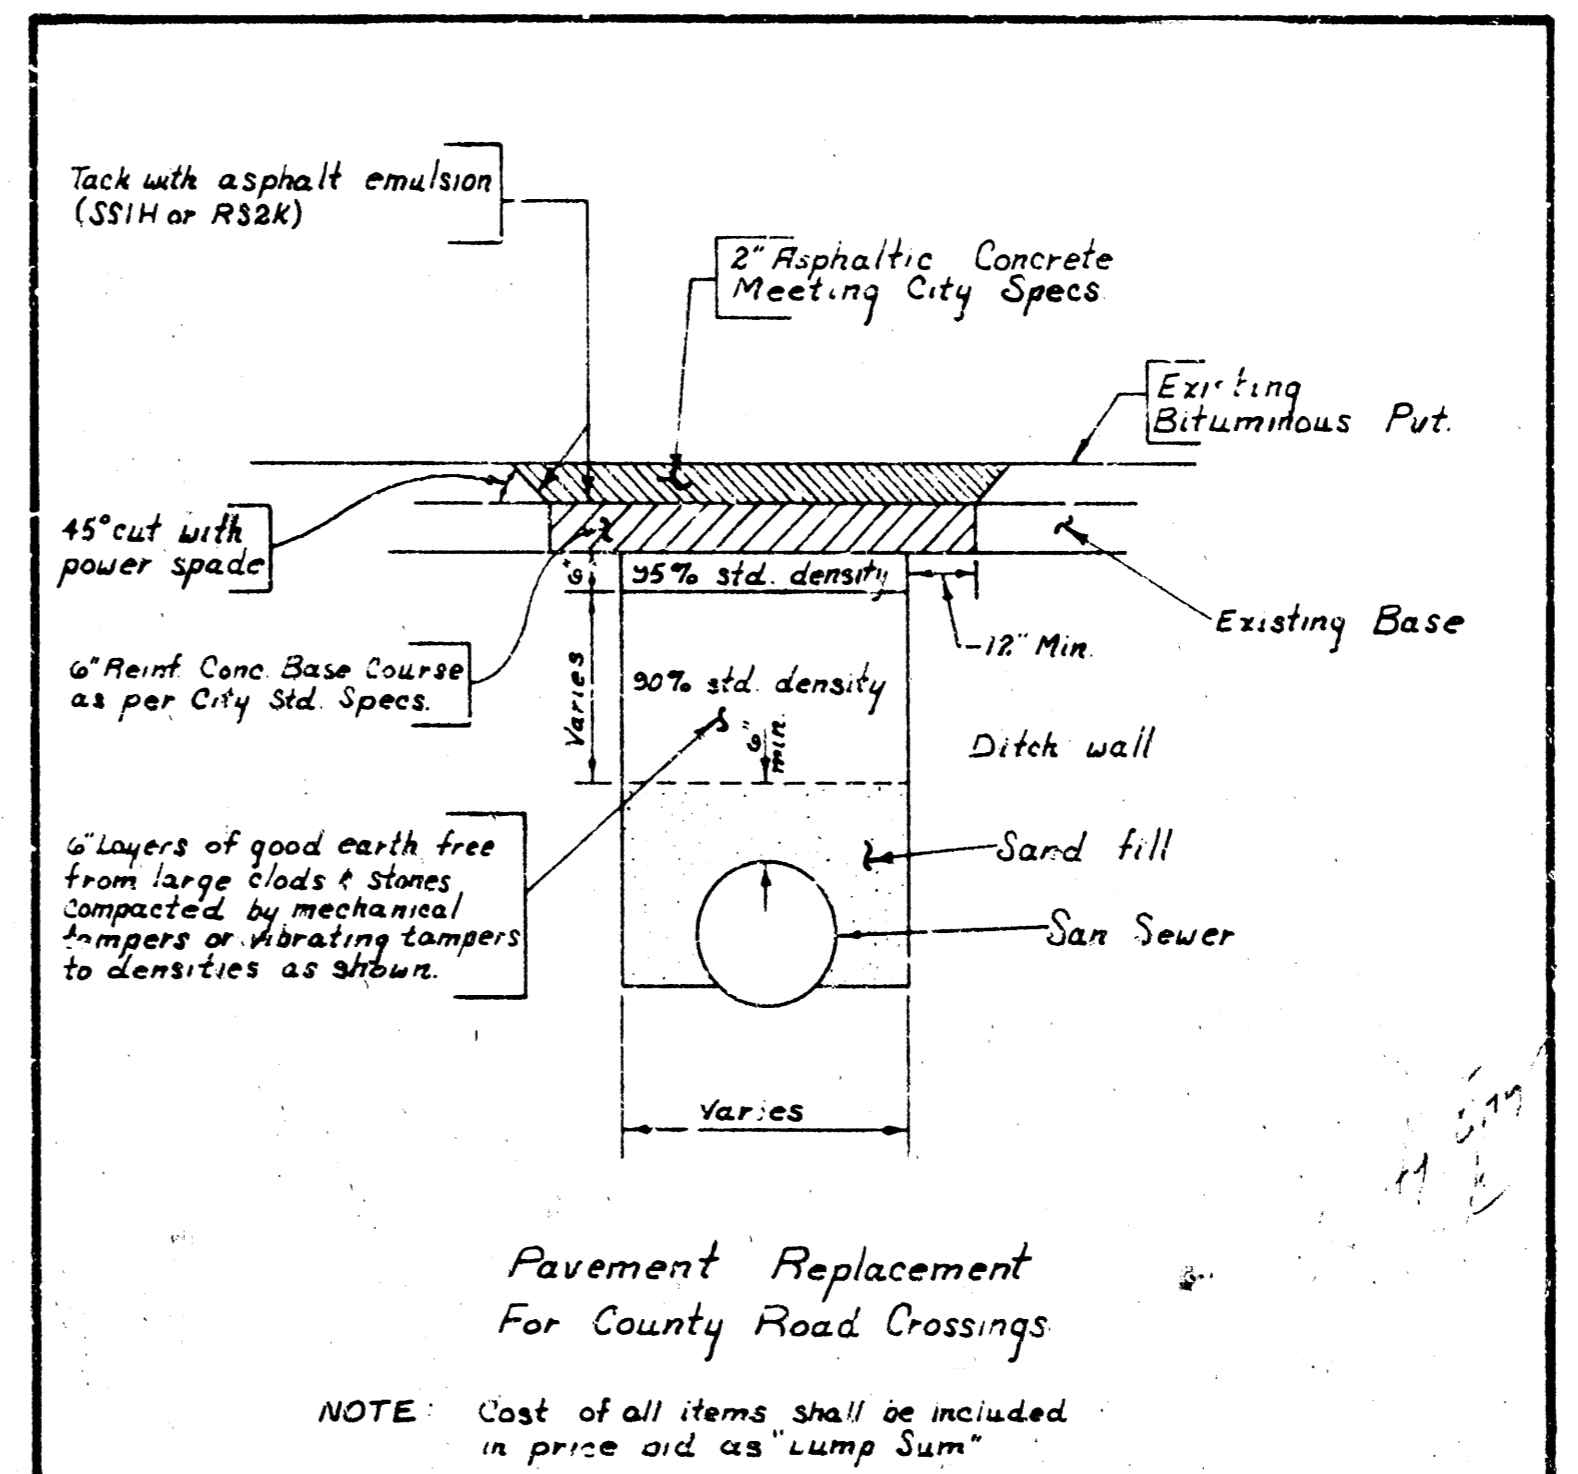 Tack with asphalt emulsion
(SS1H or RS2K)
2" Asphaltic Concrete
Meeting City Specs
Existing
Bituminous Pvt.
45° cut with
power spade
6"
95% std. density
12" Min.
Existing Base
6" Reinf. Conc. Base Course
as per City Std. Specs.
Varies
90% std. density
6"
min.
Ditch wall
6" Layers of good earth free
from large clods & stones
compacted by mechanical
tampers or vibrating tampers
to densities as shown.
Sand fill
San Sewer
Varies
Pavement Replacement
For County Road Crossings
NOTE: Cost of all items shall be included
in price bid as "Lump Sum"